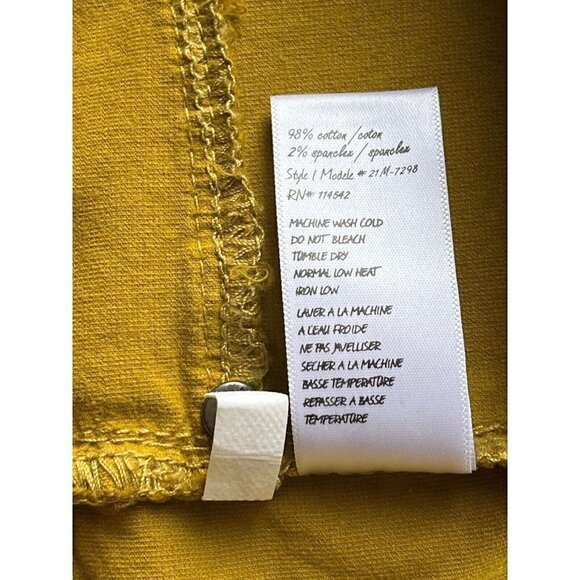 98% cotton / coton
2% spandex / spandex
Style / Modele # 21M-7298
RN# 114542
MACHINE WASH COLD
DO NOT BLEACH
TUMBLE DRY
NORMAL LOW HEAT
IRON LOW
LAVER A LA MACHINE
A L'EAU FROIDE
NE PAS JAVELLISER
SECHER A LA MACHINE
BASSE TEMPERATURE
REPASSER A BASSE
TEMPERATURE